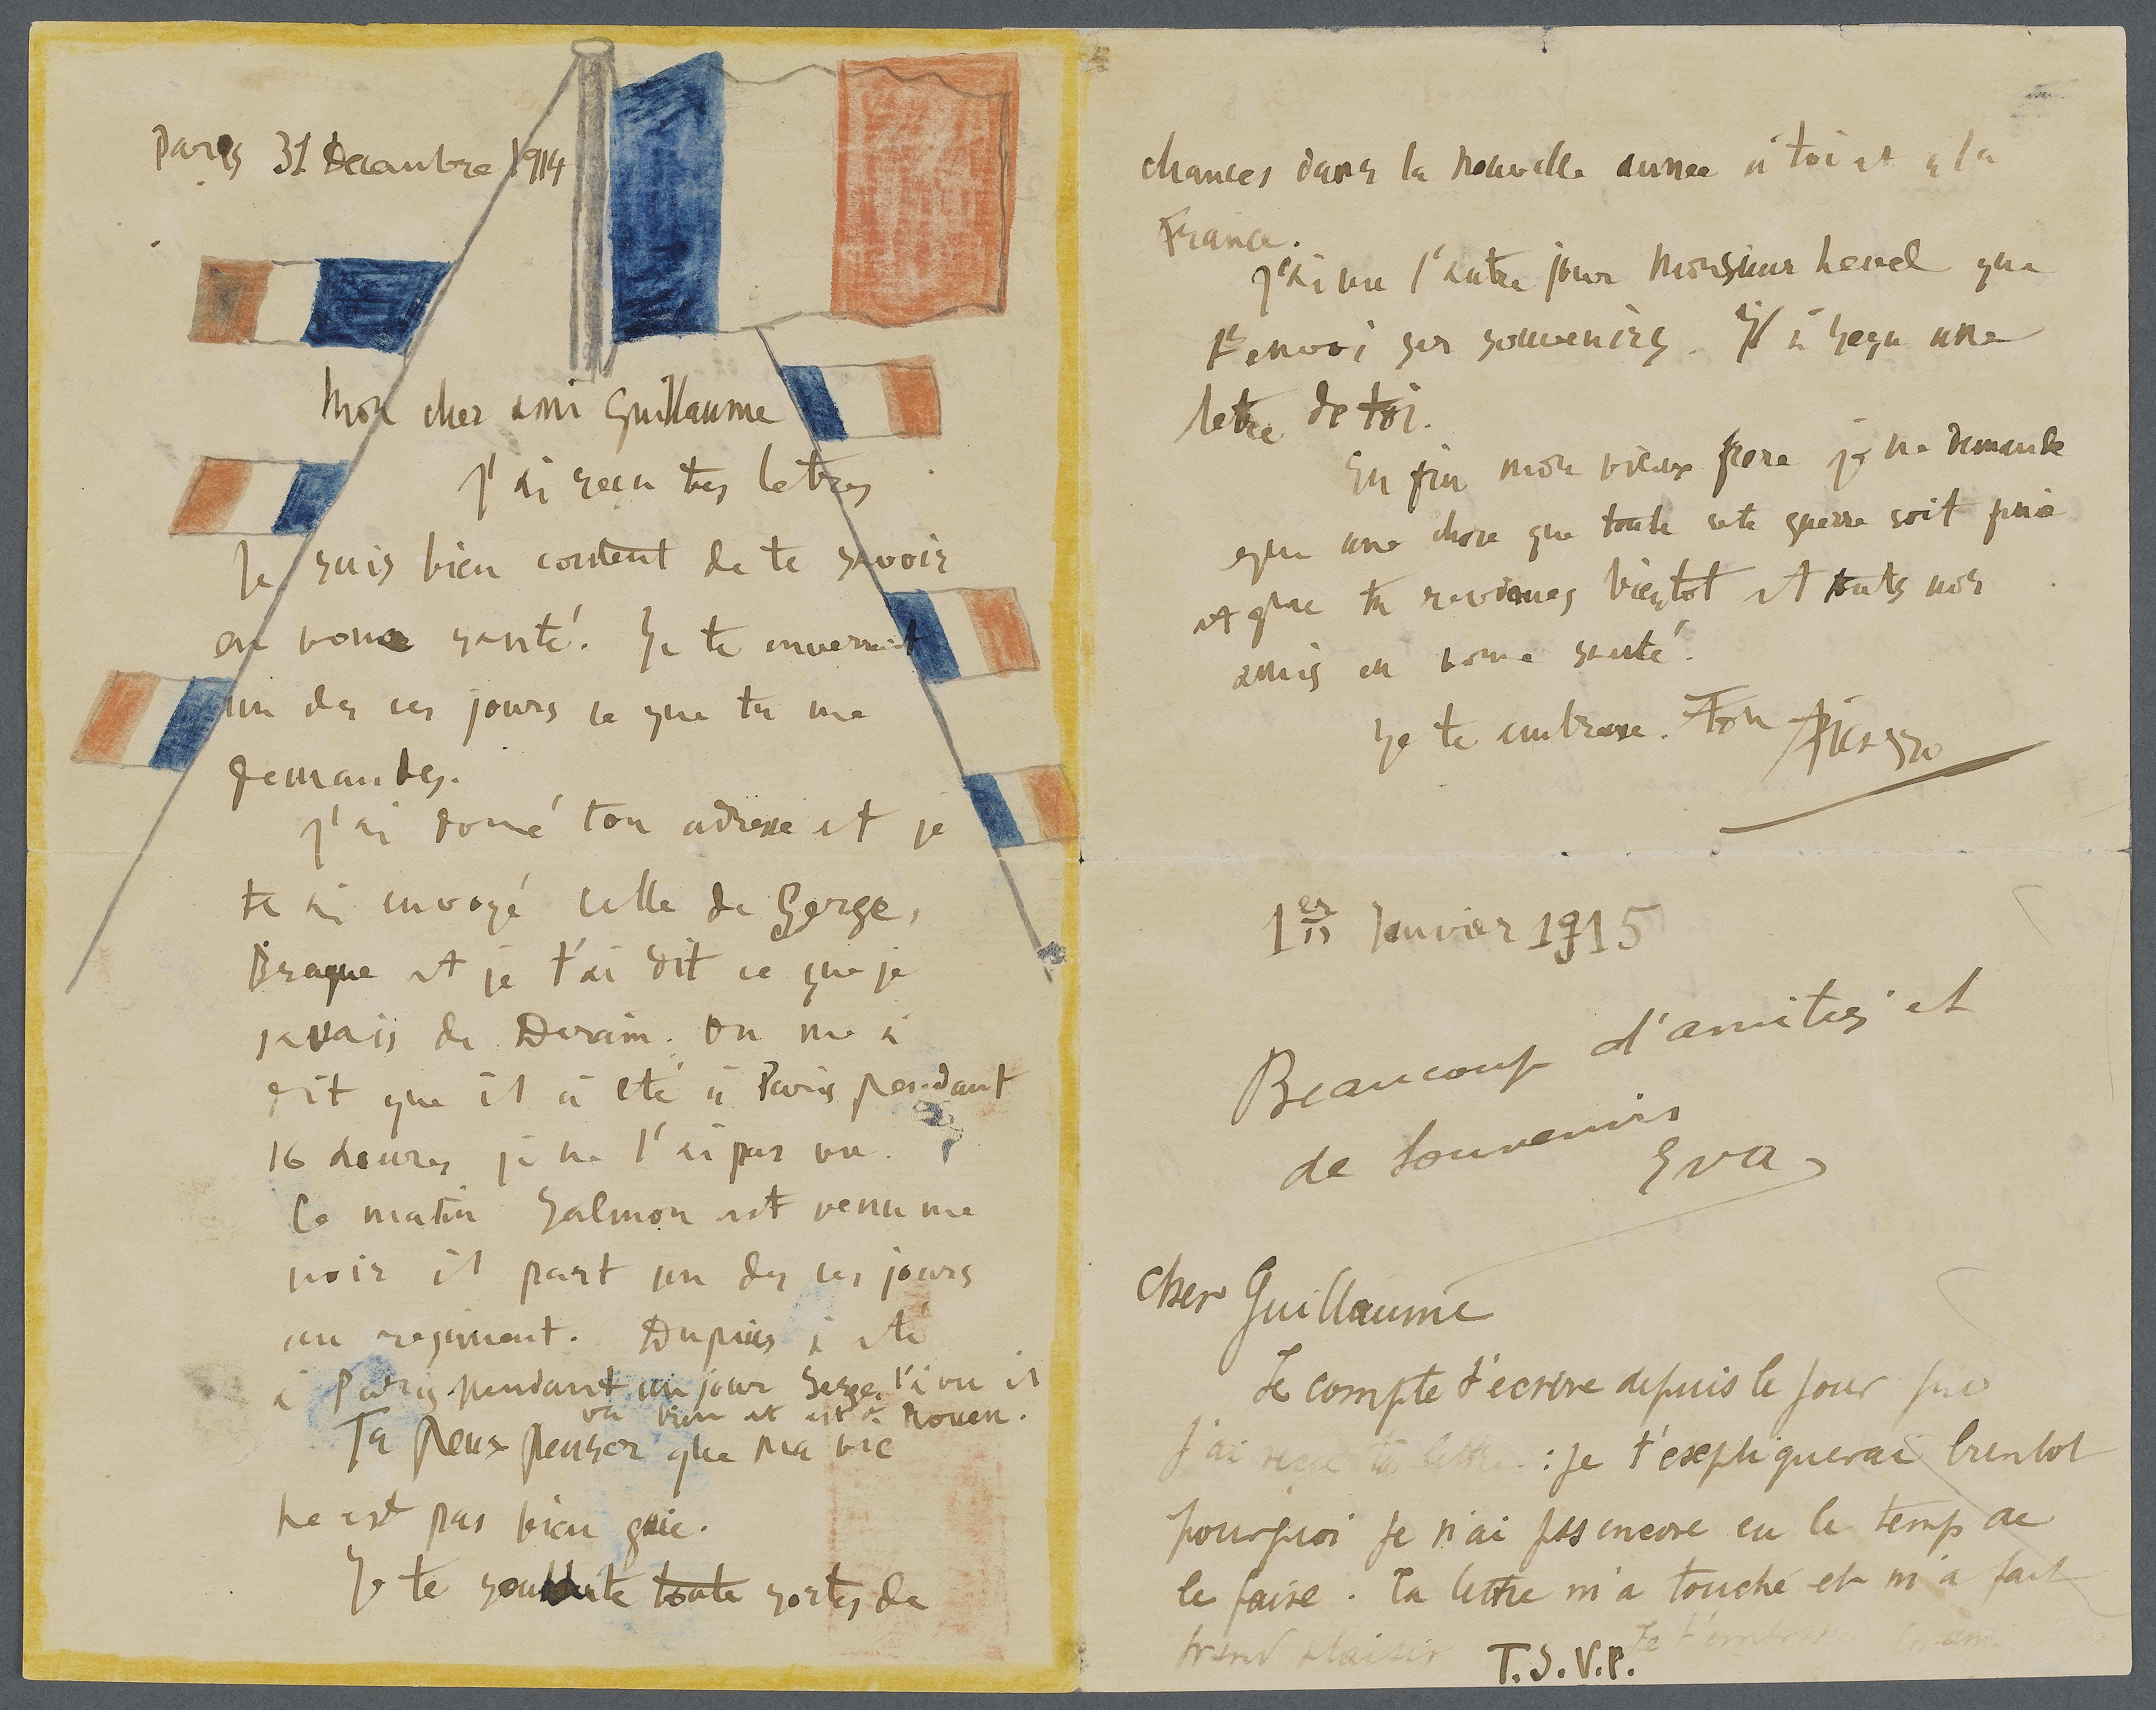 Paris 31 Decembre 1914
Mon cher ami Guillaume
J'ai reçu tes letres
Je suis bien content de te savoir
en bone santé. Je te enverrait
un des ces jours ce que tu me
demandes.
J'ai doné ton adresse et je
te ai envoyé celle de Serge,
Braque et je t'ai dit ce que je
savais de Derain. On me à
dit que il à eté à Paris pendant
16 heures je ne l'ai pas vu.
Ce matin Salmon est venu me
voir il part un des ces jours
au regiment. Dupuis à eté
à Paris pendant un jour Serge l'à vu il
va bien et est à Rouen.
Tu peux penser que ma vie
ne est pas bien gaie.
Je te souhaite toute sortes de
chances dans la nouvelle année à toi et à la
France.
J'ai vu l'autre jour Monsieur Level que
t'envoi ses souvenirs. Il à reçu une
letre de toi.
En fin mon vieux frere je ne demande
que une chose que toute cete guerre soit finie
et que tu revienes bientot et touts nos
amis en bone santé.
Je te embrasse. Ton Picasso
1er Janvier 1915
Beaucoup d'amitiés et
de souvenirs
Eva
Cher Guillaume
Je compte t'ecrire depuis le jour que
j'ai reçu ta lettre : je t'expliquerai bientot
pourquoi je n'ai pas encore eu le temp de
le faire. Ta lettre m'a touché et m'a fait
grand plaisir Je t'embrasse
T.S.V.P.